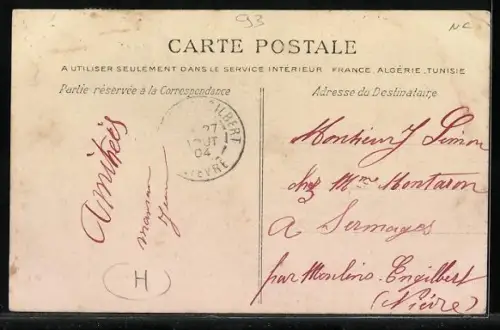 93
CARTE POSTALE
A UTILISER SEULEMENT DANS LE SERVICE INTÉRIEUR FRANCE, ALGÉRIE, TUNISIE
Partie réservée à la Correspondance
Adresse du Destinataire
Amitiés
H
ILBERT
27
AOUT
04
NIEVRE
Monsieur J Simon
chez Mme Montaron
à Sermages
par Moulins-Engilbert
(Nièvre)